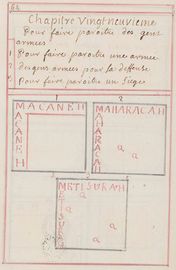 64
Chapitre Vingt-neuvieme
Pour faire paroitre des gens
armées
1 Pour faire paroitre une armée
2 des gens armées pour la deffense
3 Pour faire paroitre un Siege
1 2
MACANEH
MACANEH
MAHARACAH
MAHARACAH
3
METISURAH
METISURAH
a
a
a